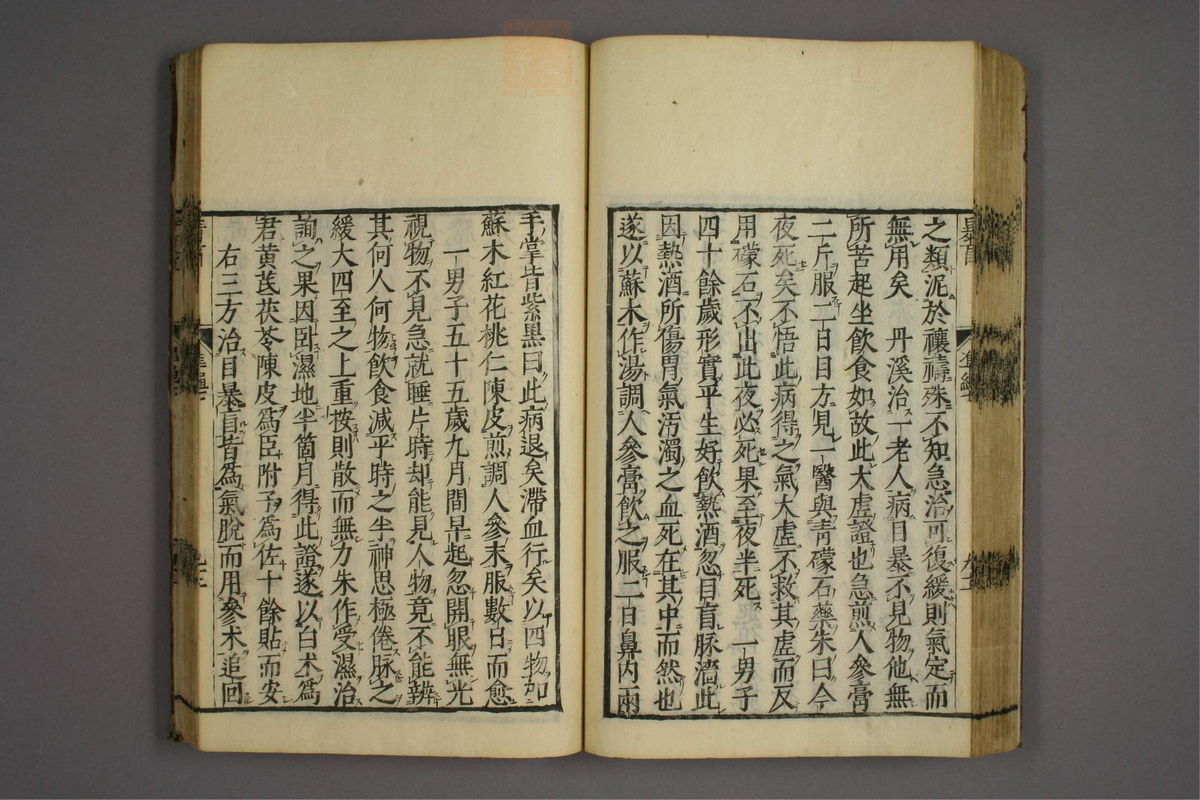 之類泥於禳禱殊不知急治可復緩則氣定而
無用矣 丹溪治一老人病目暴不見物他無
所苦起坐飲食如故此大虛證也急煎人參膏
二斤服二日目方見一醫與青礞石藥朱曰今
夜死矣不悟此病得之氣大虛不救其虛而反
用礞石不出此夜必死果至夜半死 一男子
四十餘歲形實平生好飲熱酒忽目盲脉濇此
因熱酒所傷胃氣汚濁之血死在其中而然也
遂以蘇木作湯調人參膏飲之服二日鼻内兩
手掌皆紫黑曰此病退矣滯血行矣以四物加
蘇木紅花桃仁陳皮煎調人參末服數日而愈
一男子五十五歲九月間早起忽開眼無光
視物不見急就睡片時却能見人物竟不能辨
其何人何物飲食减平時之半神思極倦脉之
緩大四至之上重按則散而無力朱作受濕治
詢之果因卧濕地半箇月得此證遂以白朮爲
君黄茋茯苓陳皮爲臣附子爲佐十餘貼而安
右三方治目暴盲皆爲氣脫而用參朮追回